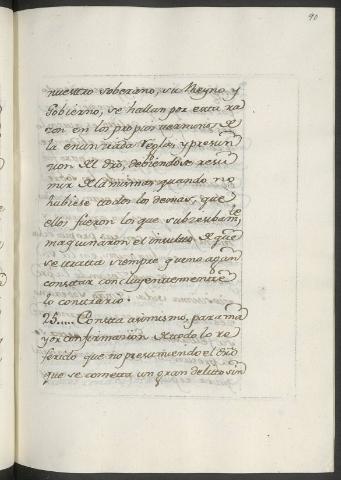 90
nuestro soberano, su Reyno y
Govierno, se hallan por esta ra
zon en los propios terminos, de
la enunciada regla, y presun
cion del dro, debiendose presu
mir de la misma, quando no
hubiese todos los demas, que
ellos fueron los que
maquinaron el insulto de que
se trata siempre que no hagan
constar concluyentemente
lo contrario.
25..... Consta asimismo, para ma
yor confirmacion de todo lo re
ferido que no presumiendo el dro
que se cometa un gran delito sin